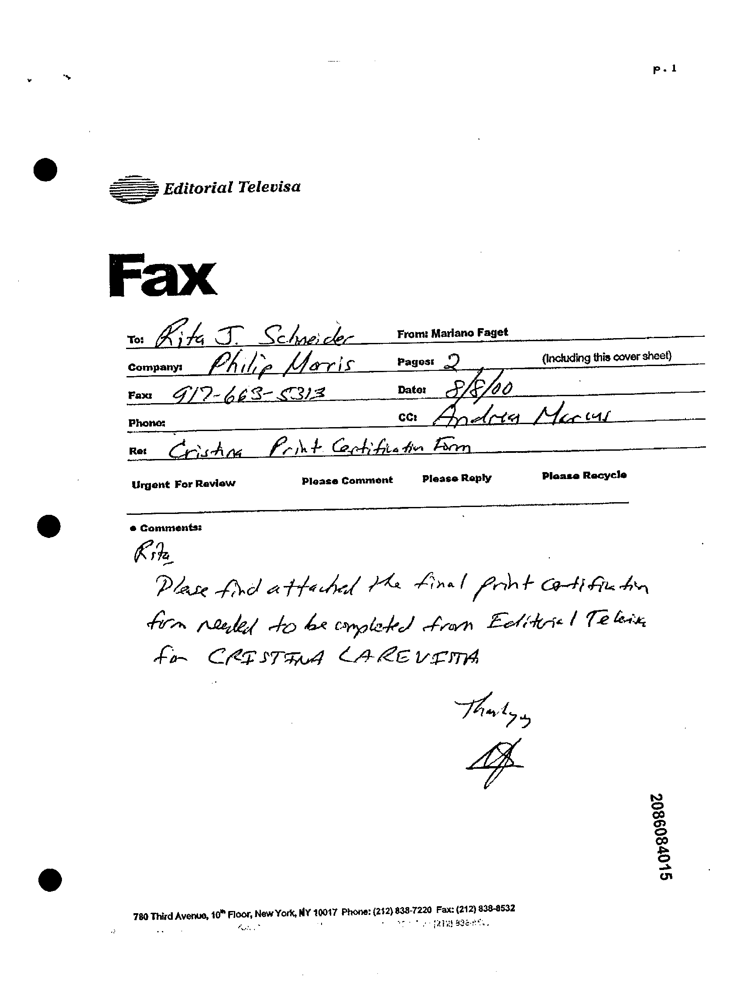 p. 1
Editorial Televisa
Fax
To: Rita J. Schneider From: Mariano Faget
Company: Philip Morris Pages: 2 (Including this cover sheet)
Fax: 917-663-5313 Date: 8/8/00
Phone: CC: Andrea Marcus
Re: Cristina Print Certification Form
Urgent For Review Please Comment Please Reply Please Recycle
• Comments:
Rita
Please find attached the final print certification
form needed to be completed from Editorial Televisa
for CRISTINA LA REVISTA
Thank you
2086084015
780 Third Avenue, 10th Floor, New York, NY 10017 Phone: (212) 838-7220 Fax: (212) 838-8532